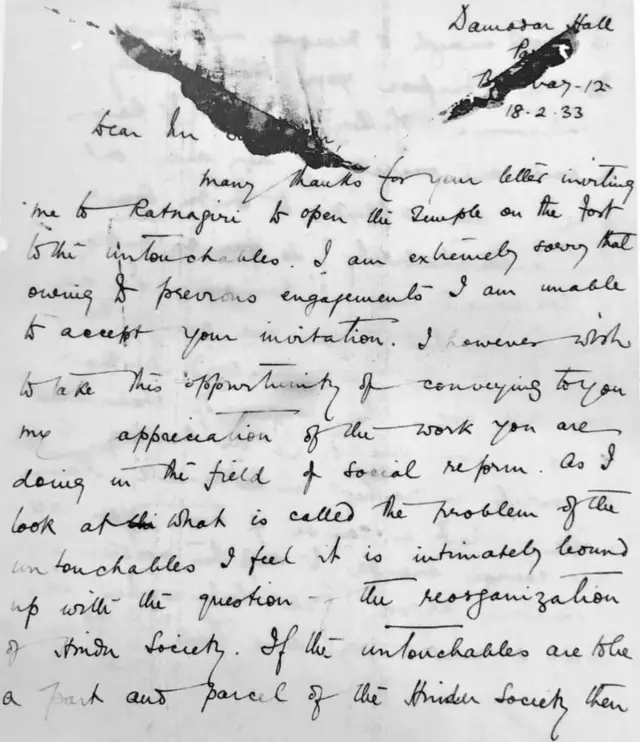 Damodar Hall
Bombay-12
18.2.33
Dear Mr
many thanks for your letter inviting
me to Ratnagiri to open the Temple on the fort
to the untouchables. I am extremely sorry that
owing to previous engagements I am unable
to accept your invitation. I however wish
to take this opportunity of conveying to you
my appreciation of the work you are
doing in the field of social reform. As I
look at what is called the problem of the
untouchables I feel it is intimately bound
up with the question - the reorganization
of Hindu Society. If the untouchables are to be
a part and parcel of the Hindu Society then